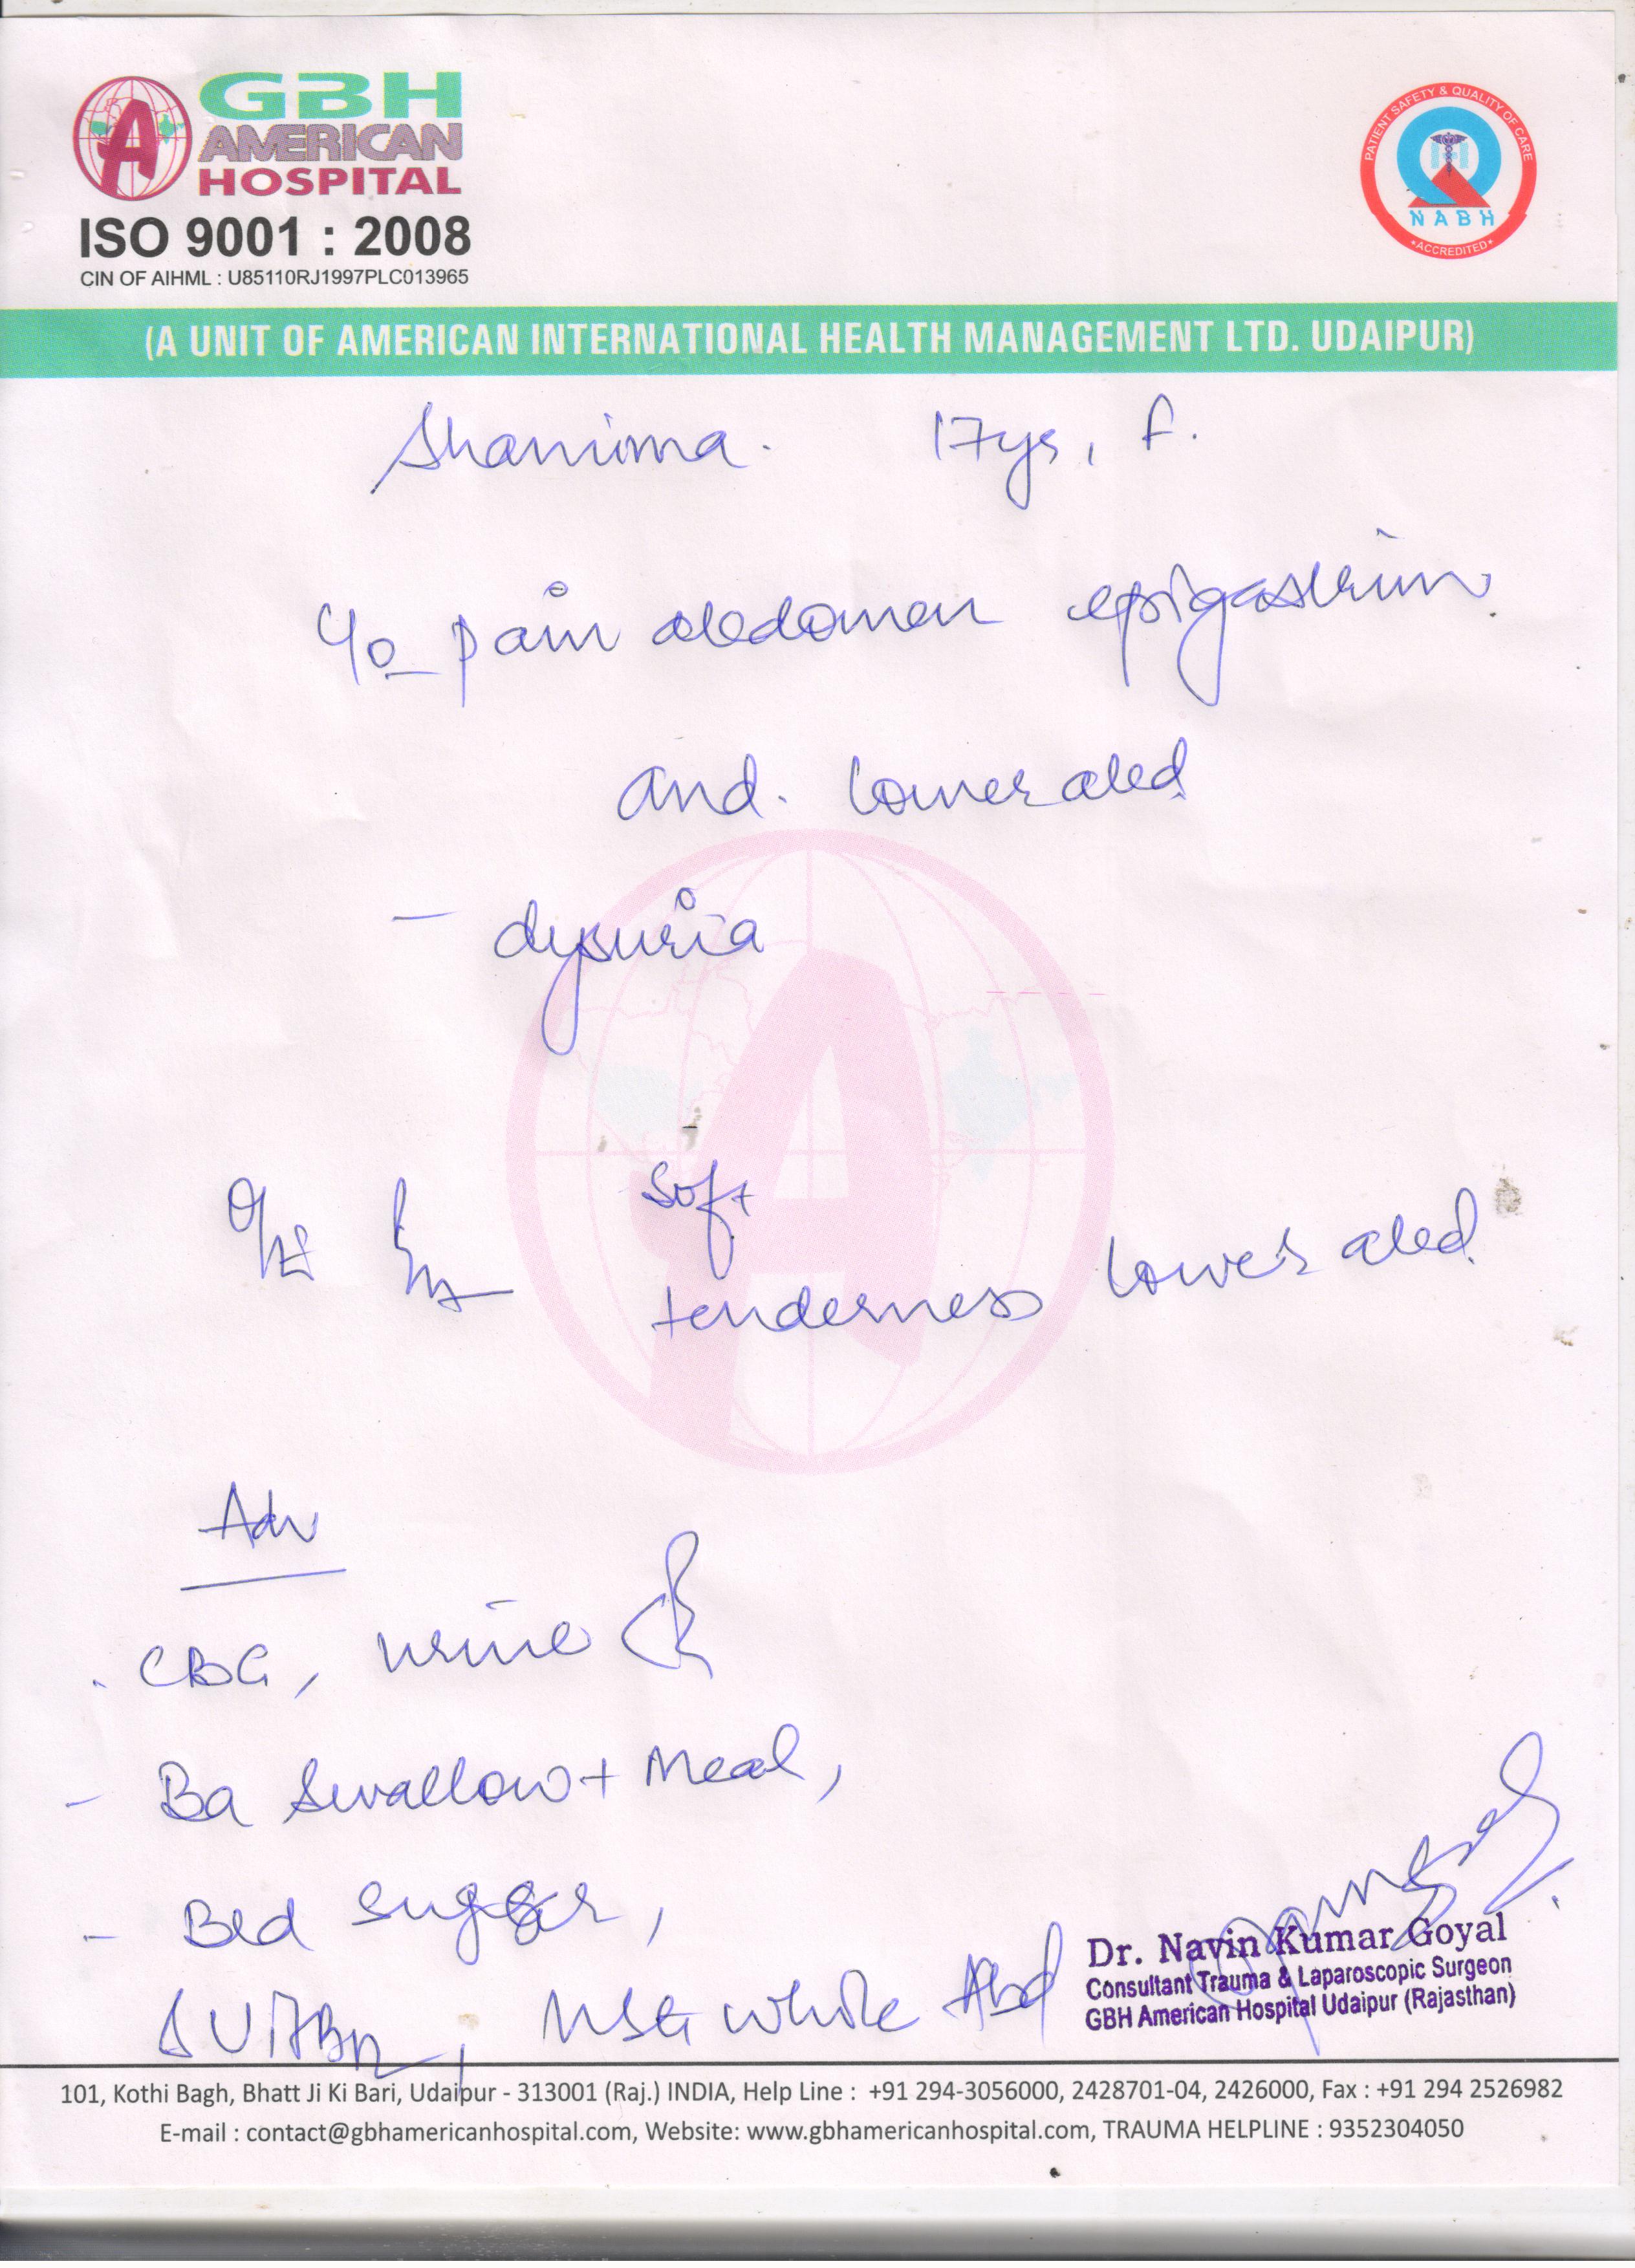 GBH
AMERICAN
HOSPITAL
ISO 9001 : 2008
CIN OF AIHML : U85110RJ1997PLC013965
PATIENT SAFETY & QUALITY OF CARE
NABH
•ACCREDITED•
(A UNIT OF AMERICAN INTERNATIONAL HEALTH MANAGEMENT LTD. UDAIPUR)
Shamima. 17ys, F.
C/o pain abdomen epigastrium
and. lower abd
- dysuria
O/E soft
tenderness lower abd
Adv
. CBC, urine
- Ba Swallow + Meal,
- Bld suger,
USG whole Abd
Dr. Navin Kumar Goyal
Consultant Trauma & Laparoscopic Surgeon
GBH American Hospital Udaipur (Rajasthan)
101, Kothi Bagh, Bhatt Ji Ki Bari, Udaipur - 313001 (Raj.) INDIA, Help Line : +91 294-3056000, 2428701-04, 2426000, Fax : +91 294 2526982
E-mail : contact@gbhamericanhospital.com, Website: www.gbhamericanhospital.com, TRAUMA HELPLINE : 9352304050